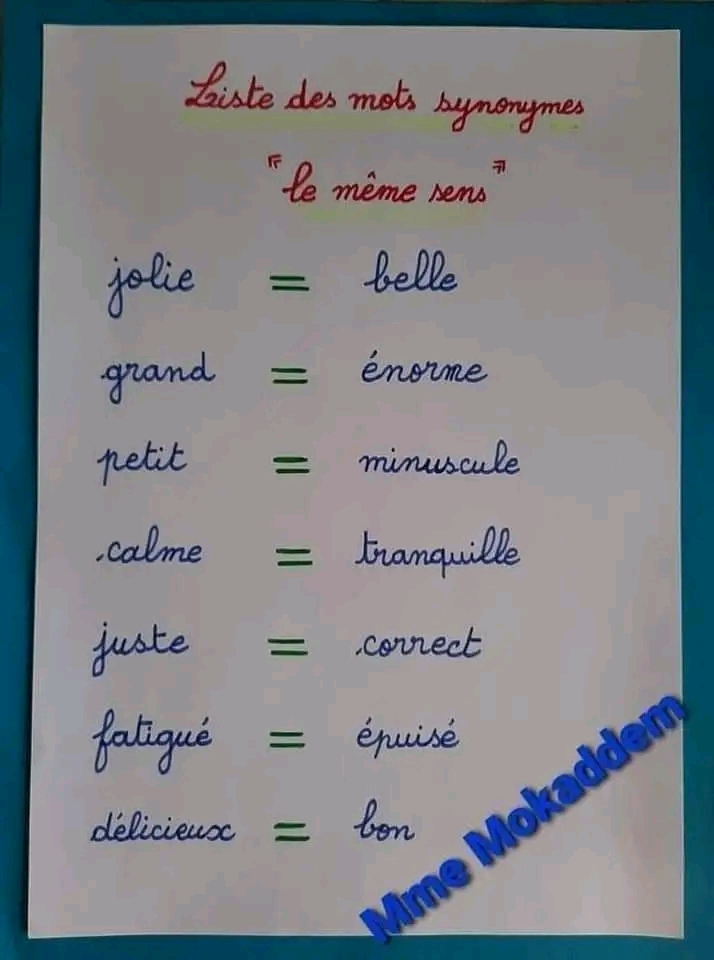 Liste des mots synonymes
"le même sens"
jolie = belle
grand = énorme
petit = minuscule
calme = tranquille
juste = correct
fatigué = épuisé
délicieux = bon
Mme Mokaddem